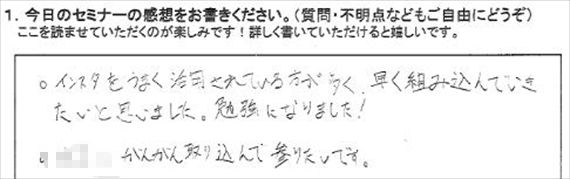 1. 今日のセミナーの感想をお書きください。(質問・不明点などもご自由にどうぞ)
ここを読ませていただくのが楽しみです!詳しく書いていただけると嬉しいです。
○インスタをうまく活用されている方が多く、早く組み込んでいき
たいと思いました。勉強になりました!
がんがん取り込んで参りたいです。